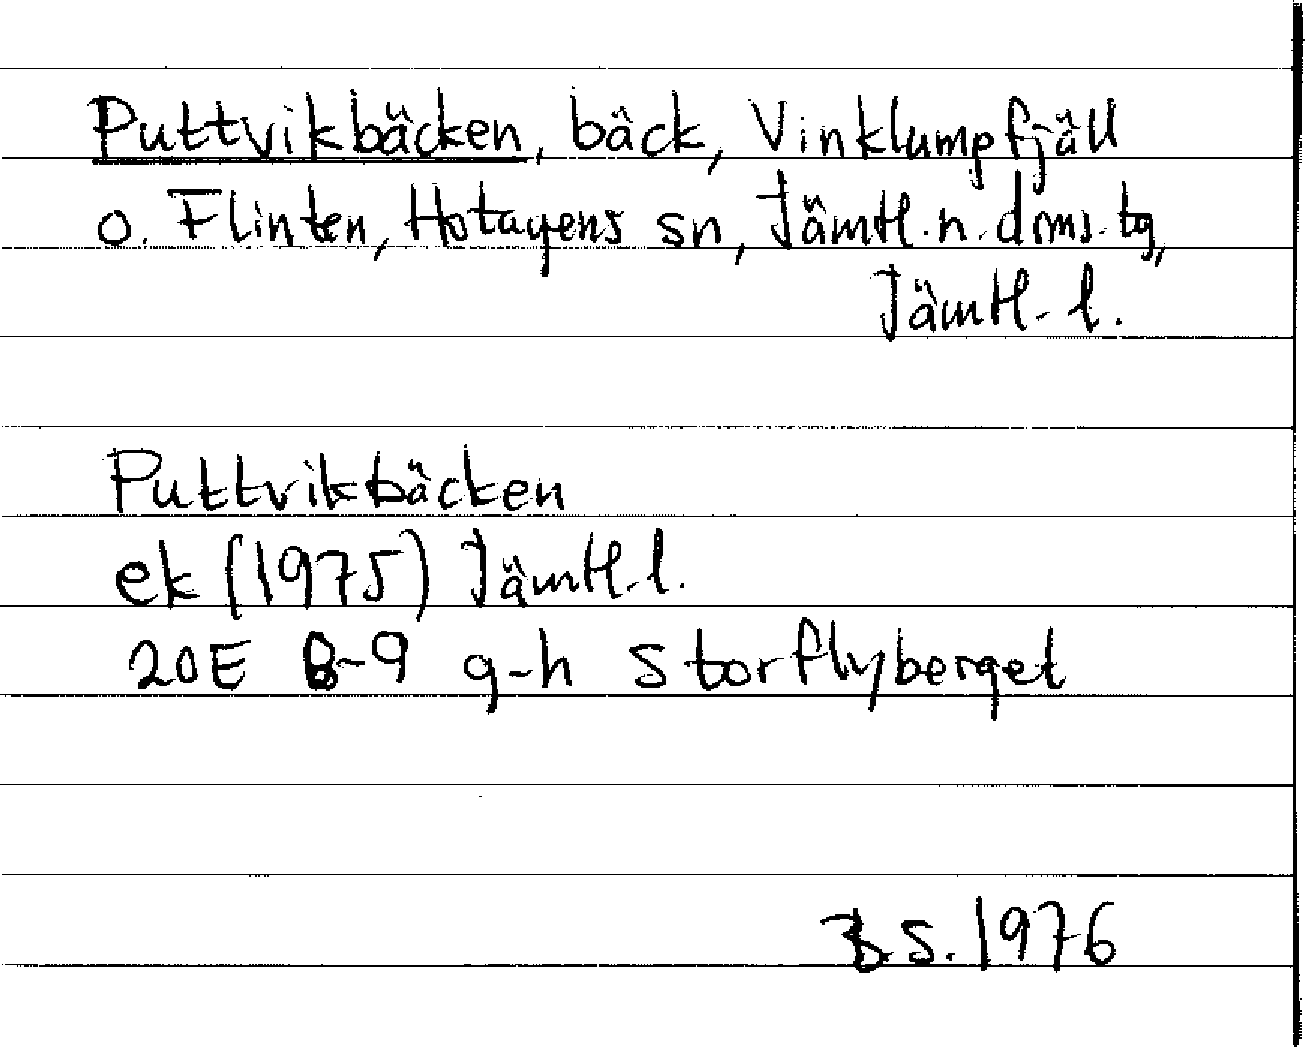 Puttvikbäcken, bäck, Vinklumpfjäll
o. Flinten, Hotagens sn, Jämtl. n. doms. tg,
Jämtl. l.
Puttvikbäcken
ek (1975) Jämtl. l.
20E 8-9 g-h Storflyberget
B.S. 1976